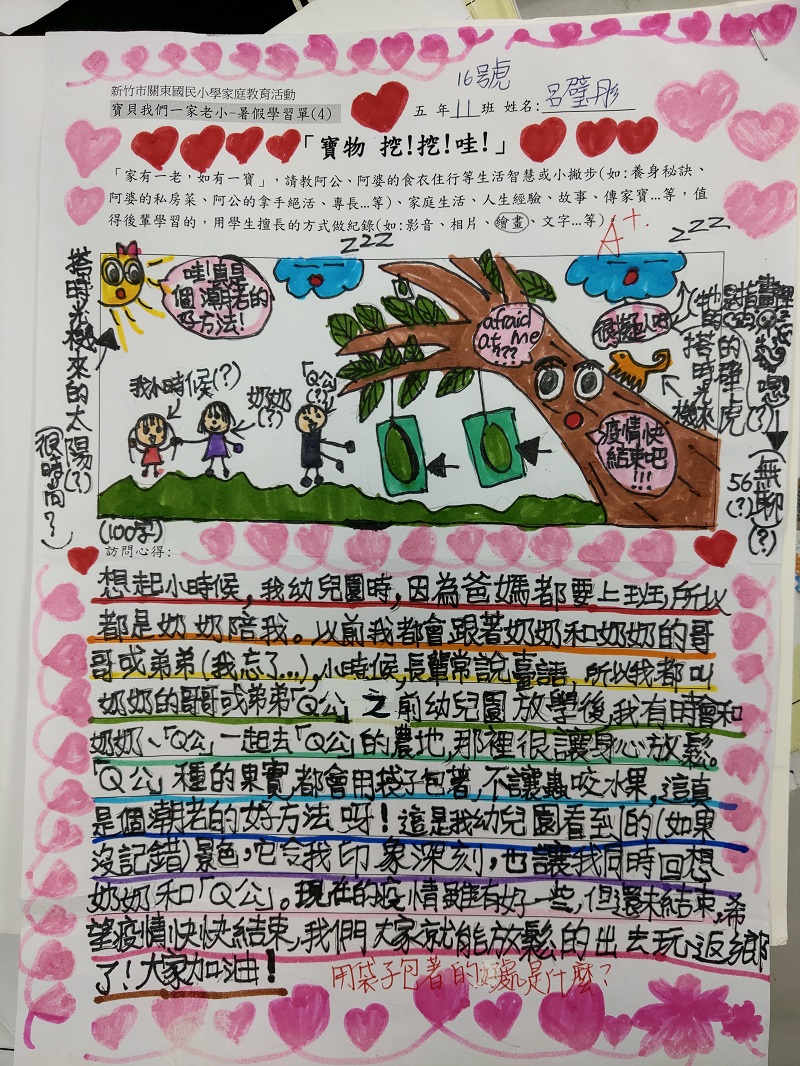 新竹市關東國民小學家庭教育活動
16號
寶貝我們一家老小-暑假學習單(4)
五 年 11 班 姓名:呂璧彤
「寶物 挖!挖!哇!」
「家有一老,如有一寶」,請教阿公、阿婆的食衣住行等生活智慧或小撇步(如:養身秘訣、
阿婆的私房菜、阿公的拿手絕活、專長...等)、家庭生活、人生經驗、故事、傳家寶...等,值
得後輩學習的,用學生擅長的方式做紀錄(如:影音、相片、繪畫、文字...等)
A+.
ZZZ
ZZZ
搭時光機來的太陽(?)
(很時尚?)
哇!真是
個潮老的
好方法!
我小時候(?)
奶奶
(?)
「Q公」
(?)
afraid
at me
???
疫情快
結束吧
!!!
搭時光
機來
(無聊)
(?)
56
(?)
(100字)
訪問心得:
想起小時候,我幼兒園時,因為爸媽都要上班,所以
都是奶奶陪我。以前我都會跟著奶奶和奶奶的哥
哥或弟弟(我忘了...),小時候,長輩常說臺語,所以我都叫
奶奶的哥哥或弟弟「Q公」之前幼兒園放學後,我有時會和
奶奶、「Q公」一起去「Q公」的農地,那裡很讓身心放鬆。
「Q公」種的果實,都會用袋子包著,不讓蟲咬水果,這真
是個潮老的好方法呀!這是我幼兒園看到的(如果
沒記錯)景色,它令我印象深刻,也讓我同時回想
奶奶和「Q公」。現在的疫情雖有好一些,但還未結束,希
望疫情快快結束,我們大家就能放鬆的出去玩、返鄉
了!大家加油!
用袋子包著的好處是什麼?